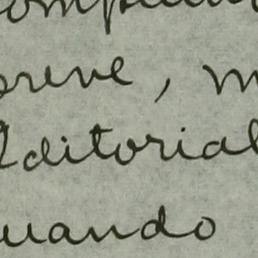 breve, m
Editorial
quando